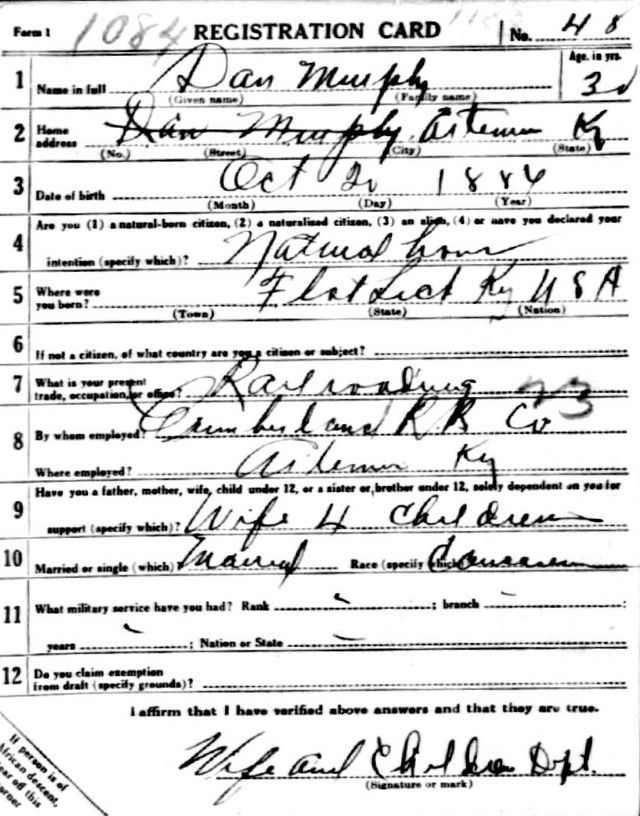 Form 1 1084 REGISTRATION CARD No. 48
1 Name in full Dan Murphy Age, in yrs.
(Given name) (Family name)
2 Home address Dan Murphy Artemus Ky
(No.) (Street) (City) (State)
3 Date of birth Oct 1886
(Month) (Day) (Year)
4 Are you (1) a natural-born citizen, (2) a naturalized citizen, (3) an alien, (4) or have you declared your
intention (specify which)? Natural born
5 Where were you born? Flat Lick Ky U S A
(Town) (State) (Nation)
6 If not a citizen, of what country are you a citizen or subject?
7 What is your present trade, occupation, or office? Railroading 23
8 By whom employed? Cumberland R R Co
Where employed? Artemus Ky
9 Have you a father, mother, wife, child under 12, or a sister or brother under 12, solely dependent on you for
support (specify which)? Wife 4 Children
10 Married or single (which) Married Race (specify which) Caucasian
11 What military service have you had? Rank ; branch ;
years ; Nation or State
12 Do you claim exemption
from draft (specify grounds)?
I affirm that I have verified above answers and that they are true.
Wife and Children Dpt.
(Signature or mark)
If person is of
African descent,
tear off this
corner